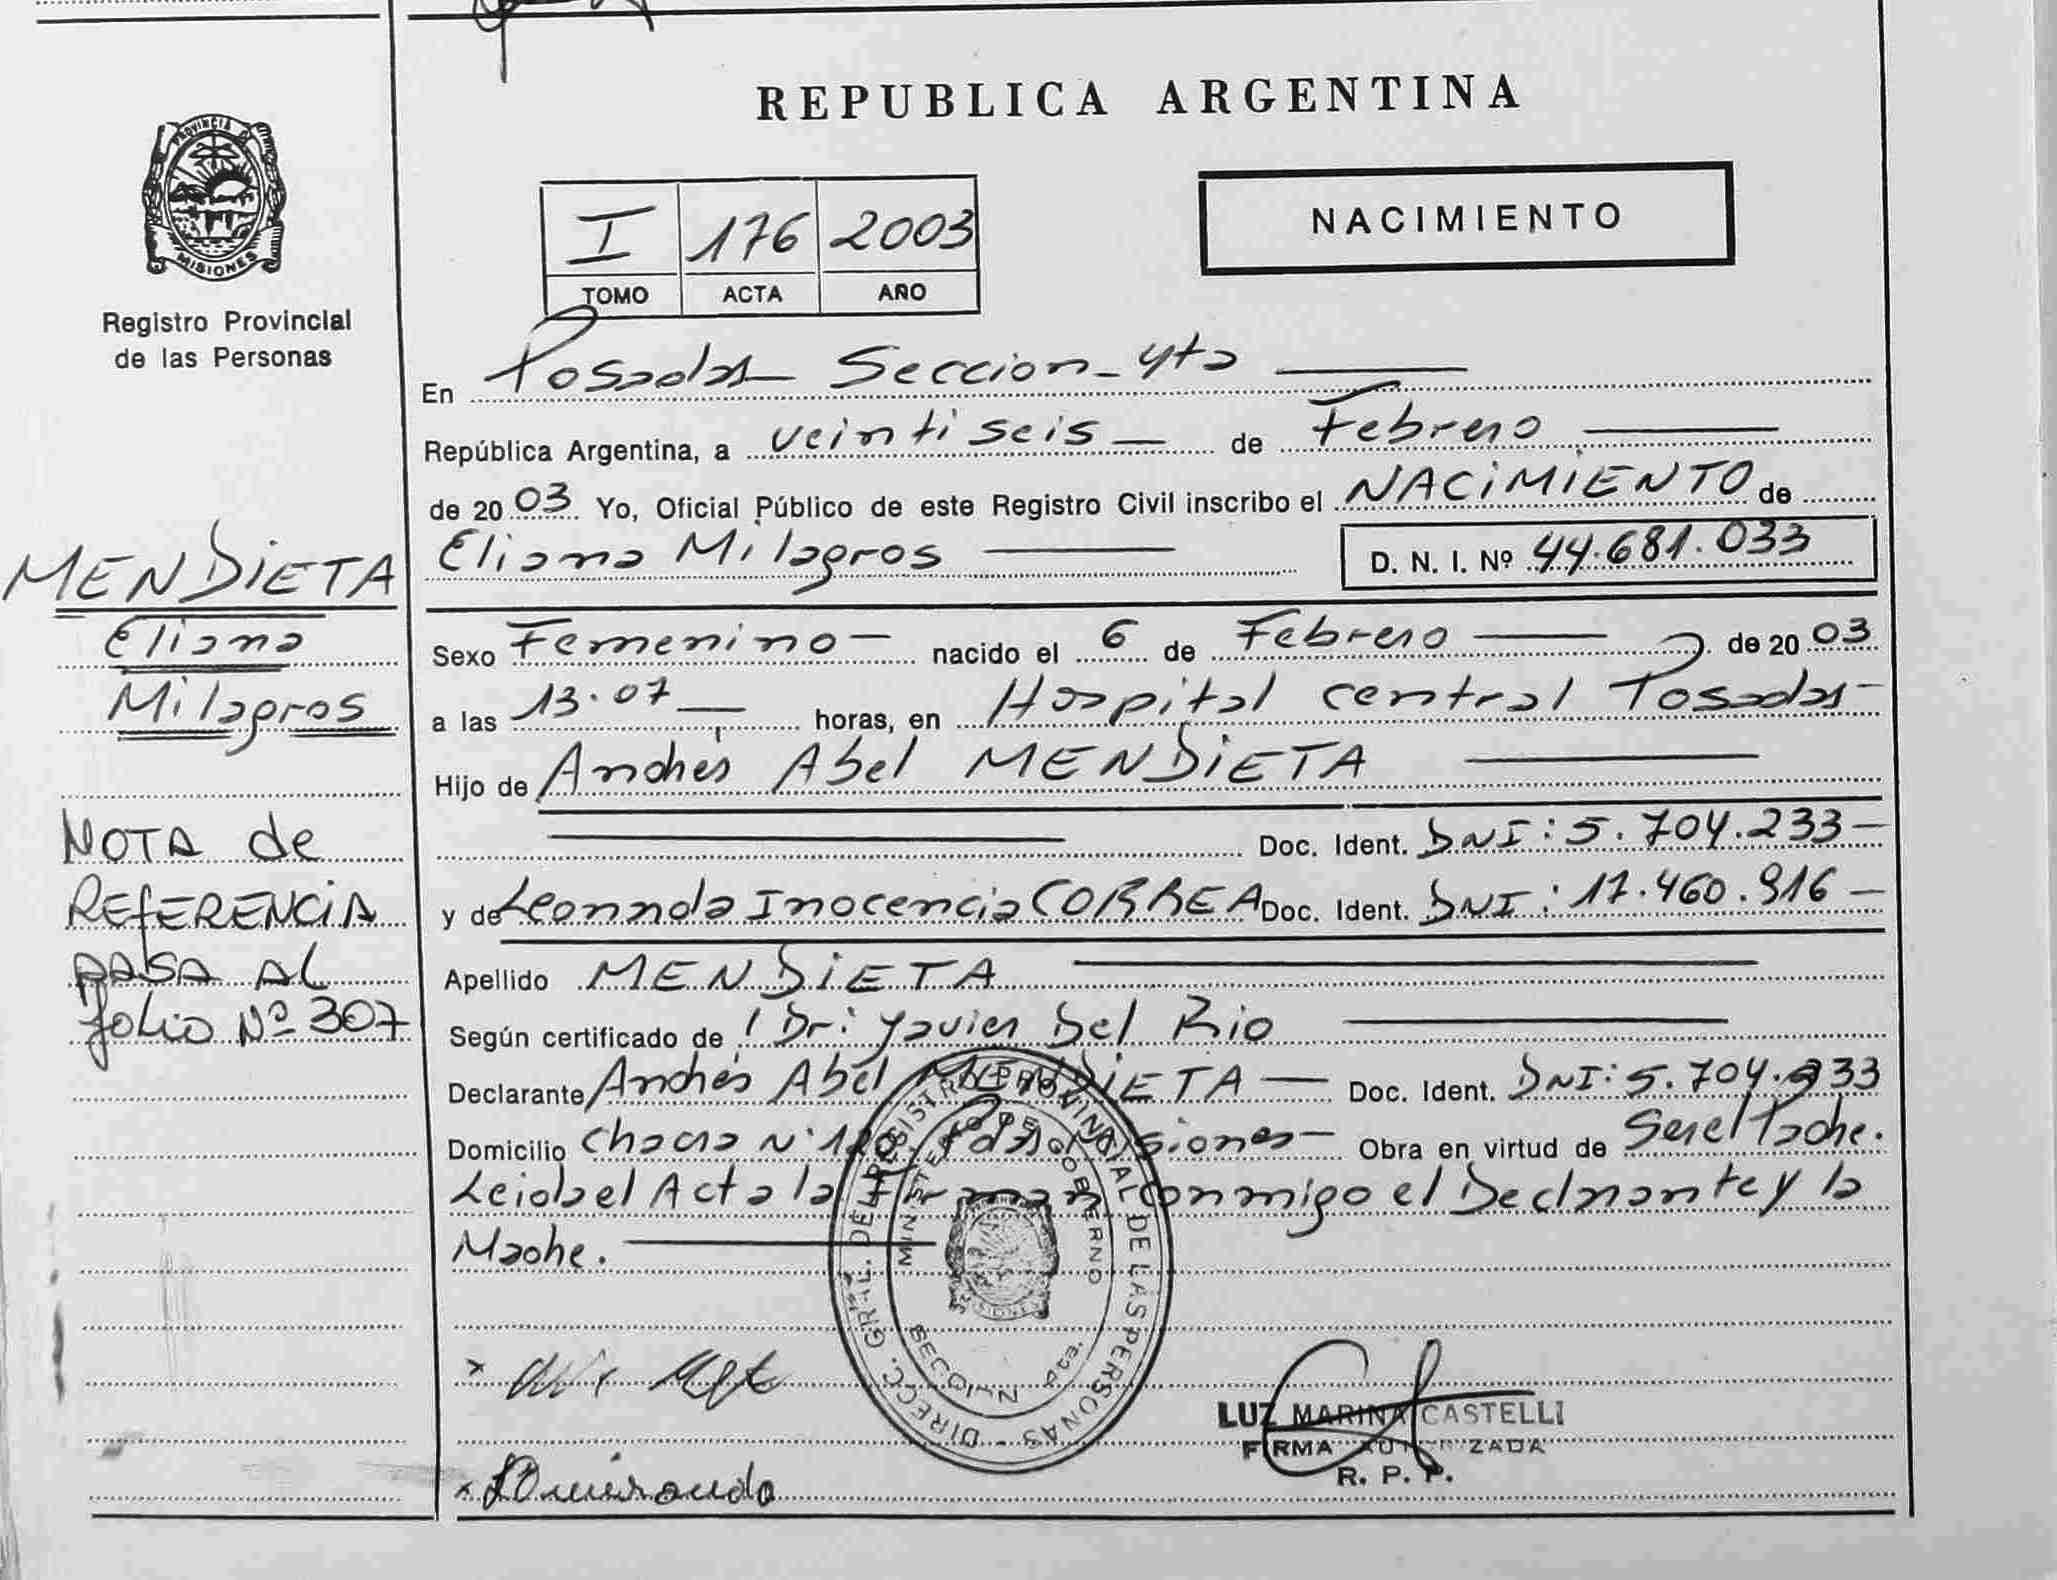 REPUBLICA ARGENTINA
PROVINCIA DE MISIONES
Registro Provincial
de las Personas
I 176 2003
TOMO ACTA AÑO
NACIMIENTO
En Posadas Seccion 4ta
República Argentina, a veintiseis de Febrero
de 2003 Yo, Oficial Público de este Registro Civil inscribo el NACIMIENTO de
Eliana Milagros D. N. I. Nº 44.681.033
MENDIETA
Eliana
Milagros
NOTA de
REFERENCIA
PASA AL
folio Nº 307
Sexo Femenino nacido el 6 de Febrero de 2003
a las 13.07 horas, en Hospital central Posadas
Hijo de Andrés Abel MENDIETA
Doc. Ident. DNI: 5.704.233
y de Leonarda Inocencia CORREA Doc. Ident. DNI: 17.460.916
Apellido MENDIETA
Según certificado de Dr: Javier Del Rio
Declarante Andrés Abel MENDIETA Doc. Ident. DNI: 5.704.233
Domicilio Chacra Nº Misiones Obra en virtud de Ser el Padre.
Leida el Acta la Firman conmigo el Declarante y la
Madre.
DIRECC. GRAL. DEL REGISTRO PROVINCIAL DE LAS PERSONAS
MINISTERIO DE GOBIERNO
SECCION
LUZ MARINA CASTELLI
FIRMA AUTORIZADA
R. P. P.